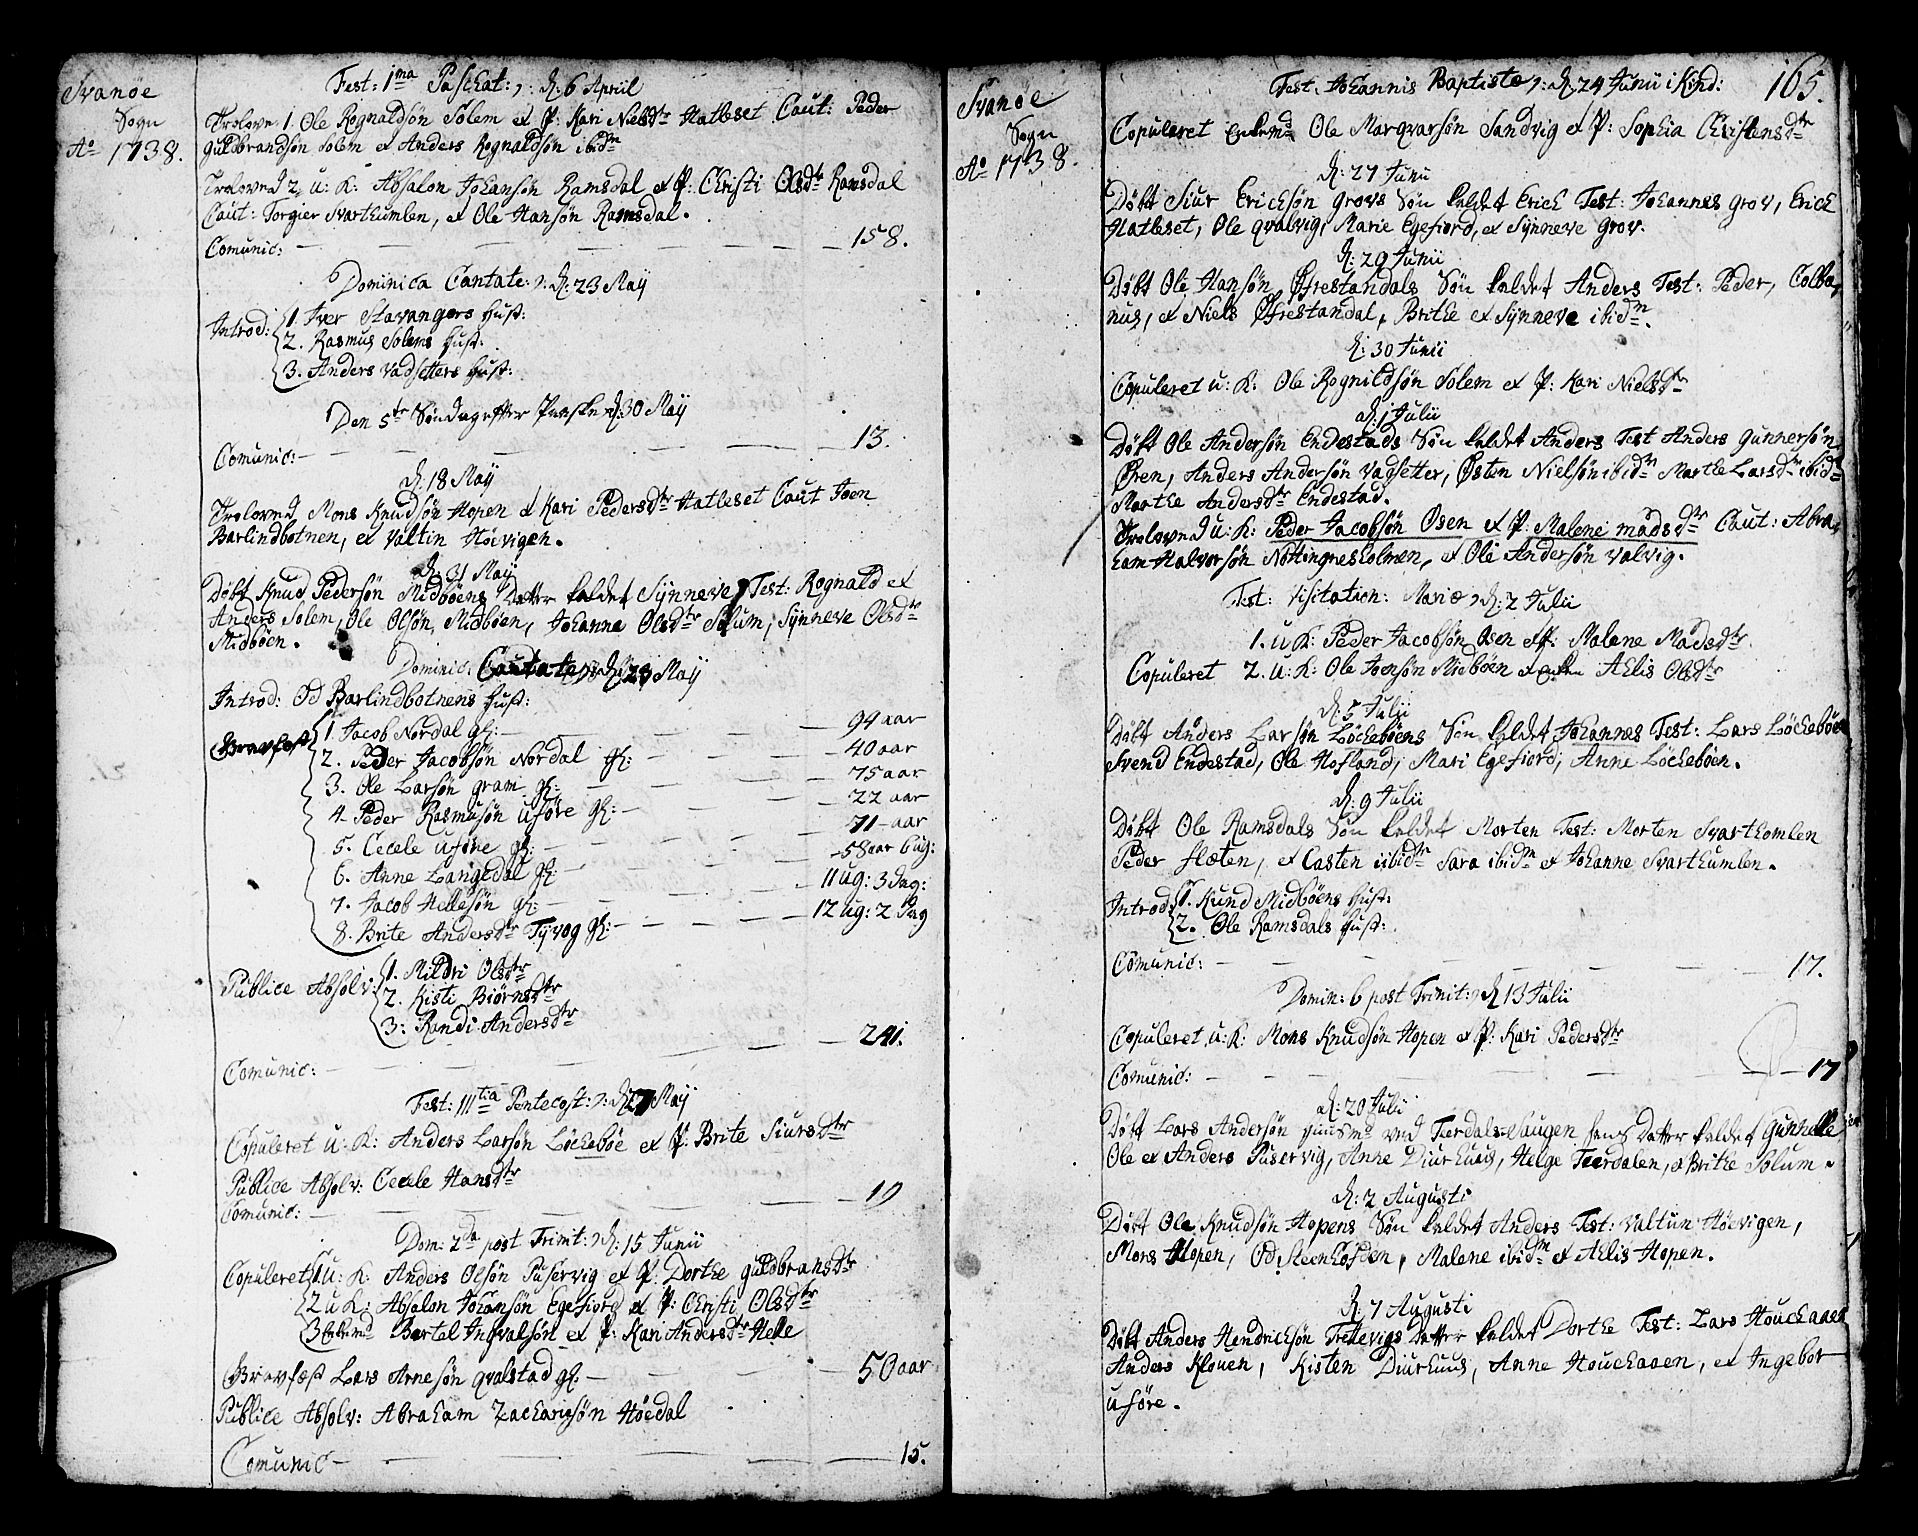 Svanøe
Sogn
Ao 1738.
Fest: 1ma Paschat: ɔ: d: 6 April
Trolove 1. Ole Rognaldsøn Solem et P: Kari Nielsdtr Hatleset Caut: Peder
Guldbrandsøn Solem et Anders Rognaldsøn ibidm
Troloved 2. u: K: Absalon Johansøn Ramsdal et P: Christi Olsdtr Ramsdal
Caut: Torgier Svarthumlen, et Ole Hansøn Ramsdal.
Comunic: — 158.
Dominica Cantate: ɔ: d: 23 May
Introd: 1. Iver Stavangers hust:
2. Rasmus Solems hust:
3. Anders Vadsetters hust:
Den 5te Søndag efter Paaske d: 30 May
Comunic: — 13.
d: 18 May
Troloved Mons Knudsøn Hopen et Kari Pedersdtr Hatleset Caut Joen
Barlindbotnen, et Valtin Høivigen.
d: 31 May
Døbt Knud Pedersøn Midbøens Datter kaldet Synneve, Test: Rognald et
Anders Solem, Ole Olsøn, Midbøen, Johanne Olsdtr Solum, Synneve Olsdtr
Midbøen.
Dominic: Cantate ɔ: d: 23 May
Introd: Od Barlindbotnens hust:
Gravfest 1. Jacob Nordal gl: — 94 aar
2. Peder Jacobsøn Nordal gl: — 40 aar
3. Ole Larsøn gram gl: — 75 aar
4. Peder Rasmusøn Uføre gl: — 22 aar
5. Cecele Uføre gl: — 71 aar
6. Anne Langedal gl: — 58 aar 6 ug:
7. Jacob Hellesøn gl: — 11 ug: 3 dag:
8. Brite Andersdtr Tyvog gl: — 12 ug: 2 Dag
Publice Absolv: 1. Mildri Olsdtr
2. Kisti Biørnsdtr
3: Randi Andersdtr
Comunic: — 241.
Fest: IIItia Pentecost: ɔ: d: 27 May
Copuleret u: K: Anders Larsøn Løchebøe et P: Brite Siursdtr
Publice Absolv: Cecele Hansdtr
Comunic: — 19
Dom: 2da post Trinit: ɔ: d: 15 Junii
Copuleret 1. u: K: Anders Olsøn Puservig et P: Dorthe Guldbransdtr
2 u K: Absalon Johansøn Egefiord et P: Christi Olsdtr
3 Enkemd Bertel Ingvalsøn et P: Kari Andersdtr Helle
Gravfæst Lars Arnesøn Qvalstad gl: — 50 aar
Publice Absolv: Abraham Zachariæsøn Høedal
Comunic — 15.
Svanøe
Sogn
Ao 1738.
165.
Fest: Johannis Baptistæ ɔ: d: 24 Junii i Kind:
Copuleret Enkemd Ole Marqvarsøn Sandvig et P: Sophia Christensdtr
d: 27 Junii
Døbt Siur Erichsøn Grovs Søn kaldet Erich Test: Johannes Grov, Erich
Hatleset, Ole Qvalvig, Marie Egefiord, et Synneve Grov.
d: 29 Junii
Døbt Ole Hansøn Øfrestandals Søn kaldet Anders Test: Peder, Colba,
nus, et Niels Øfrestandal, Brithe et Synneve ibidm.
d: 30 Junii
Copuleret u: K: Ole Rognildsøn Solem et P: Kari Nielsdtr
d: 1 Julii
Døbt Ole Andersøn Endestads Søn kaldet Anders Test Anders Gunnersøn
Øren, Anders Andersøn Vadsetter, Østen Nielsøn ibidm Marthe Larsdtr ibidm
Marthe Andersdtr Endestad.
Troloved u: K: Peder Jacobsøn Osen et P: Malene Madsdtr Caut: Abra,
ham Halvorsøn Nottingnesholmen, et Ole Andersøn Valvig.
Fest: Visitation: Mariæ ɔ: d: 2 Julii
1. u K: Peder Jacobsøn Osen et P: Malene Madsdtr
Copuleret 2. u: K: Ole Joensøn Midbøen et Aelis Olsdtr
d: 5 Julii
Døbt Anders Larsøn Løchebøens Søn kaldet Johannes Test: Lars Løchebøen
Svend Endestad, Ole Hofland, Mari Egefiord, Anne Løchebøen.
d: 9 Julii
Døbt Ole Ramsdals Søn kaldet Morten Test: Morten Svartholmen
Peder flæten, et Casten ibidm Sara ibidm et Johanne Svarthumlen.
Introd: 1. Knud Midbøens hust:
2. Ole Ramsdals hust:
Comunic: — 17.
Domin: 6 post Trinit: ɔ: d 13 Julii
Copuleret u: K: Mons Knudsøn Hopen et P: Kari Pedersdtr
Comunic: — 17
d: 20 Julii
Døbt Lars Andersøn huusmd ved Teerdals-Saugen hans Datter kaldet Gunhille
Ole et Anders Puservig, Anne Diurhuus, Helge Teerdalen, et Brithe Solum.
d: 2 Augusti
Døbt Ole Knudsøn Hopens Søn kaldet Anders Test: Valtun Høevigen,
Mons Hopen, Od Steenhofden, Malene ibidm et Aelis Hopen.
d: 7 Augusti
Døbt Anders Hendrichsøn Trettevigs Datter kaldet Dorthe Test: Lars Houchaaen
Anders Klouen, Kisten Diurhuus, Anne Houchaaen, et Ingebor
Uføre.